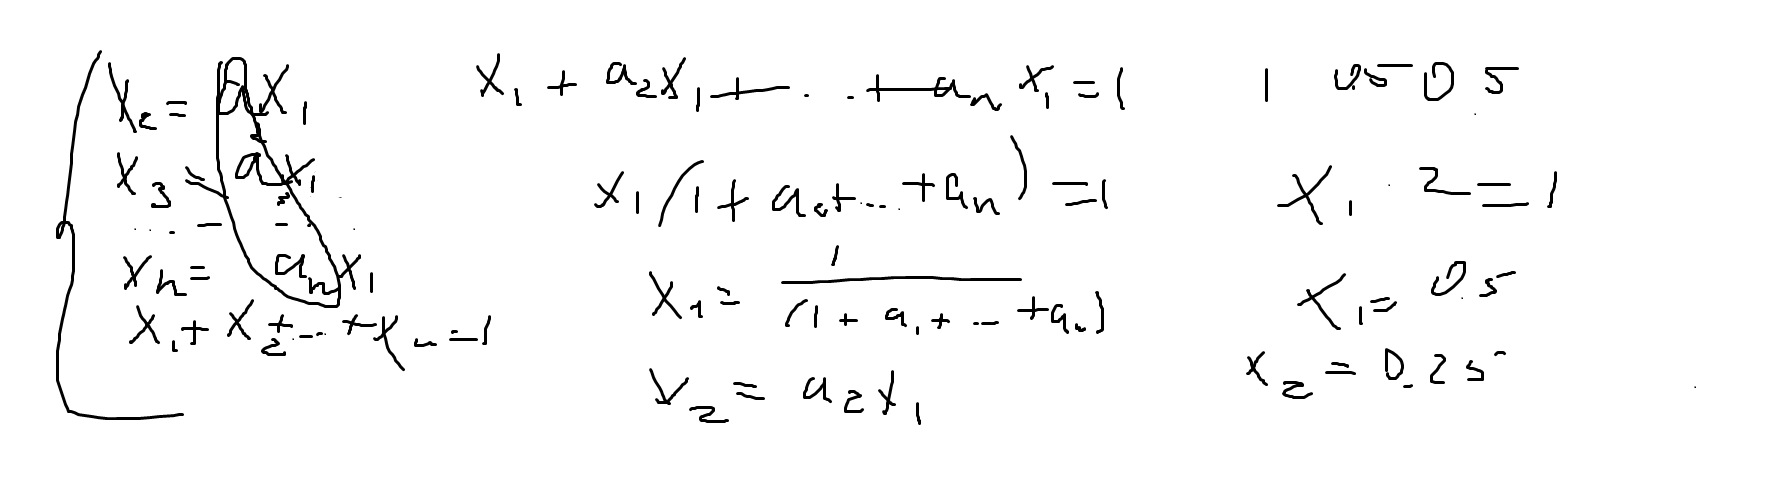 x₂ = a₂x₁
x₃ = a₃x₁
... - - .
xₙ = aₙx₁
x₁ + x₂ + ... + xₙ = 1
x₁ + a₂x₁ + ... + aₙx₁ = 1
x₁(1 + a₂ + ... + aₙ) = 1
x₁ = 1 / (1 + a₁ + ... + aₙ)
x₂ = a₂x₁
1 0.5 0.5
x₁ · 2 = 1
x₁ = 0.5
x₂ = 0.25